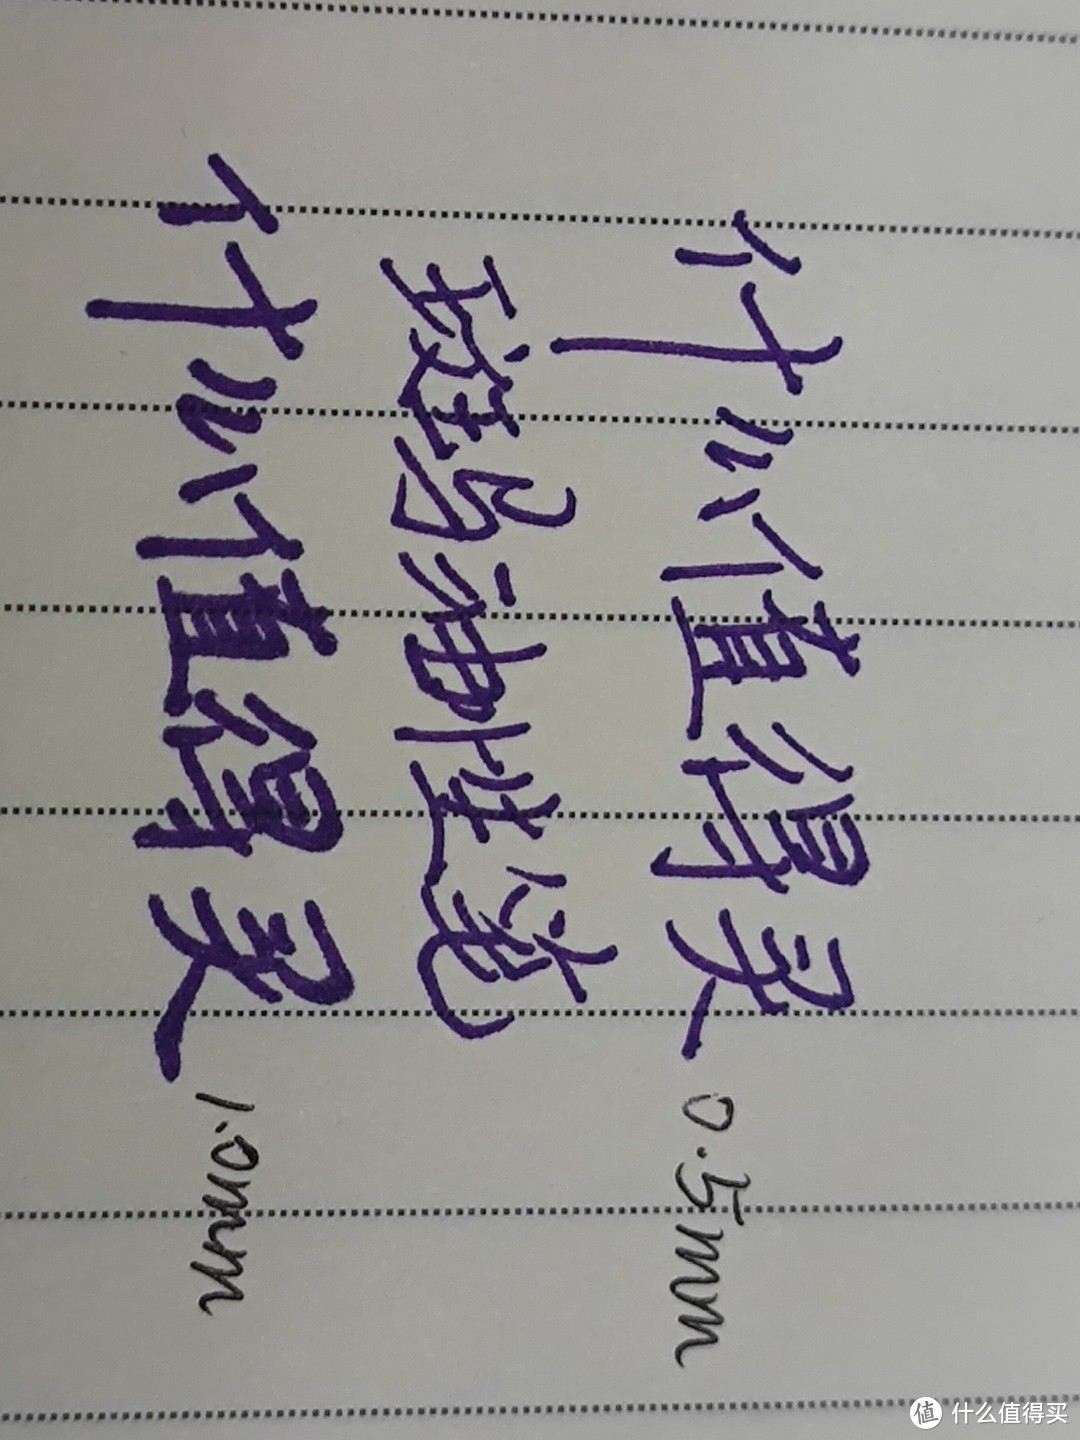 什么值得买 0.5mm
斑马油性笔
什么值得买 1.0mm
值 什么值得买